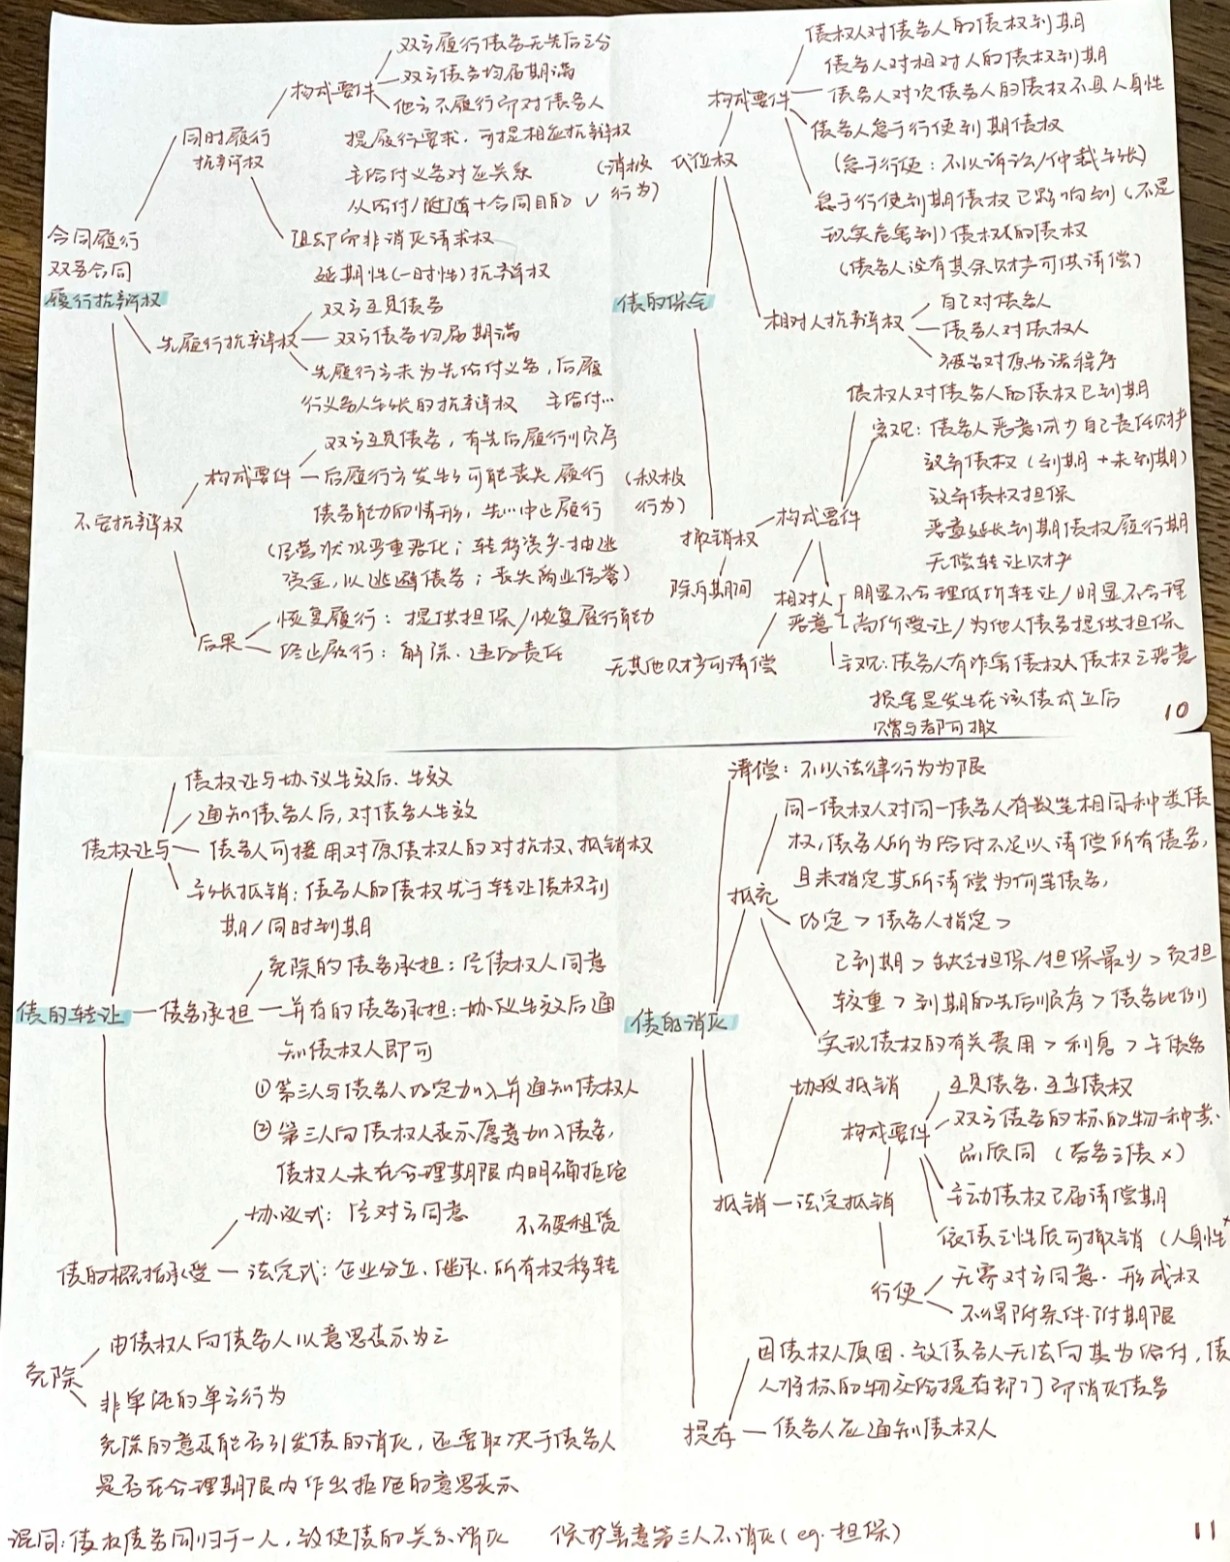 合同履行
双务合同
履行抗辩权
同时履行
抗辩权
构成要件
双方履行债务无先后之分
双方债务均届期满
他方不履行而对债务人
提履行要求，可提相应抗辩权
主给付义务对应关系
从给付/随附+合同目的√
阻却而非消灭请求权
延期性(一时性)抗辩权
先履行抗辩权
双方互负债务
双方债务均届期满
先履行方未为先给付义务，后履
行义务人主张的抗辩权 主给付…
不安抗辩权
构成要件
双方互负债务，有先后履行顺序
后履行方发生了可能丧失履行
债务能力的情形，先…中止履行
(经营状况严重恶化；转移资产抽逃
资金，以逃避债务；丧失商业信誉)
后果
恢复履行：提供担保/恢复履行能力
终止履行：解除、违约责任
债的保全
(消极
行为)
代位权
构成要件
债权人对债务人的债权到期
债务人对相对人的债权到期
债务人对次债务人的债权不具人身性
债务人怠于行使到期债权
(怠于行使：不以诉讼/仲裁主张)
怠于行使到期债权已影响到(不足
现实危害到)债权人的债权
(债务人没有其余财产可供清偿)
相对人抗辩权
自己对债务人
债务人对债权人
被告对原告诉程序
(积极
行为)
撤销权
除斥期间
构成要件
债权人对债务人的债权已到期
客观：债务人恶意减少自己责任财产
放弃债权(到期+未到期)
放弃债权担保
恶意延长到期债权履行期
无偿转让财产
相对人
恶意
明显不合理低价转让/明显不合理
高价受让/为他人债务提供担保
主观：债务人有诈害债权人债权之恶意
无其他财产可清偿
损害是发生在该债成立后
赠与都可撤
10
债的转让
债权让与
债权让与协议生效后，生效
通知债务人后，对债务人生效
债务人可援用对原债权人的对抗权、抵销权
主张抵销：债务人的债权先于转让债权到
期/同时到期
债务承担
免除的债务承担：经债权人同意
并存的债务承担：协议生效后通
知债权人即可
①第三人与债务人约定加入并通知债权人
②第三人向债权人表示愿意加入债务，
债权人未在合理期限内明确拒绝
债的概括承受
协议式：经对方同意
不破租赁
法定式：企业分立、继承、所有权移转
免除
由债权人向债务人以意思表示为之
非单纯的单方行为
免除的意表能否引发债的消灭，还要取决于债务人
是否在合理期限内作出拒绝的意思表示
混同：债权债务同归于一人，致使债的关系消灭 保护善意第三人不消灭(eg.担保)
债的消灭
清偿：不以法律行为为限
抵充
同一债权人对同一债务人有数笔相同种类债
权，债务人所为给付不足以清偿所有债务，
且未指定其所清偿为何笔债务，
约定>债务人指定>
已到期>缺乏担保/担保最少>负担
较重>到期的先后顺序>债务比例
实现债权的有关费用>利息>主债务
抵销
协议抵销
法定抵销
构成要件
互负债务、互享债权
双方债务的标的物种类、
品质同(劳务之债×)
主动债权已届清偿期
依债之性质可撤销(人身性×
行使
无需对方同意、形成权
不得附条件、附期限
提存
因债权人原因，致债务人无法向其为给付，债
人将标的物交给提存部门而消灭债务
债务人应通知债权人
11